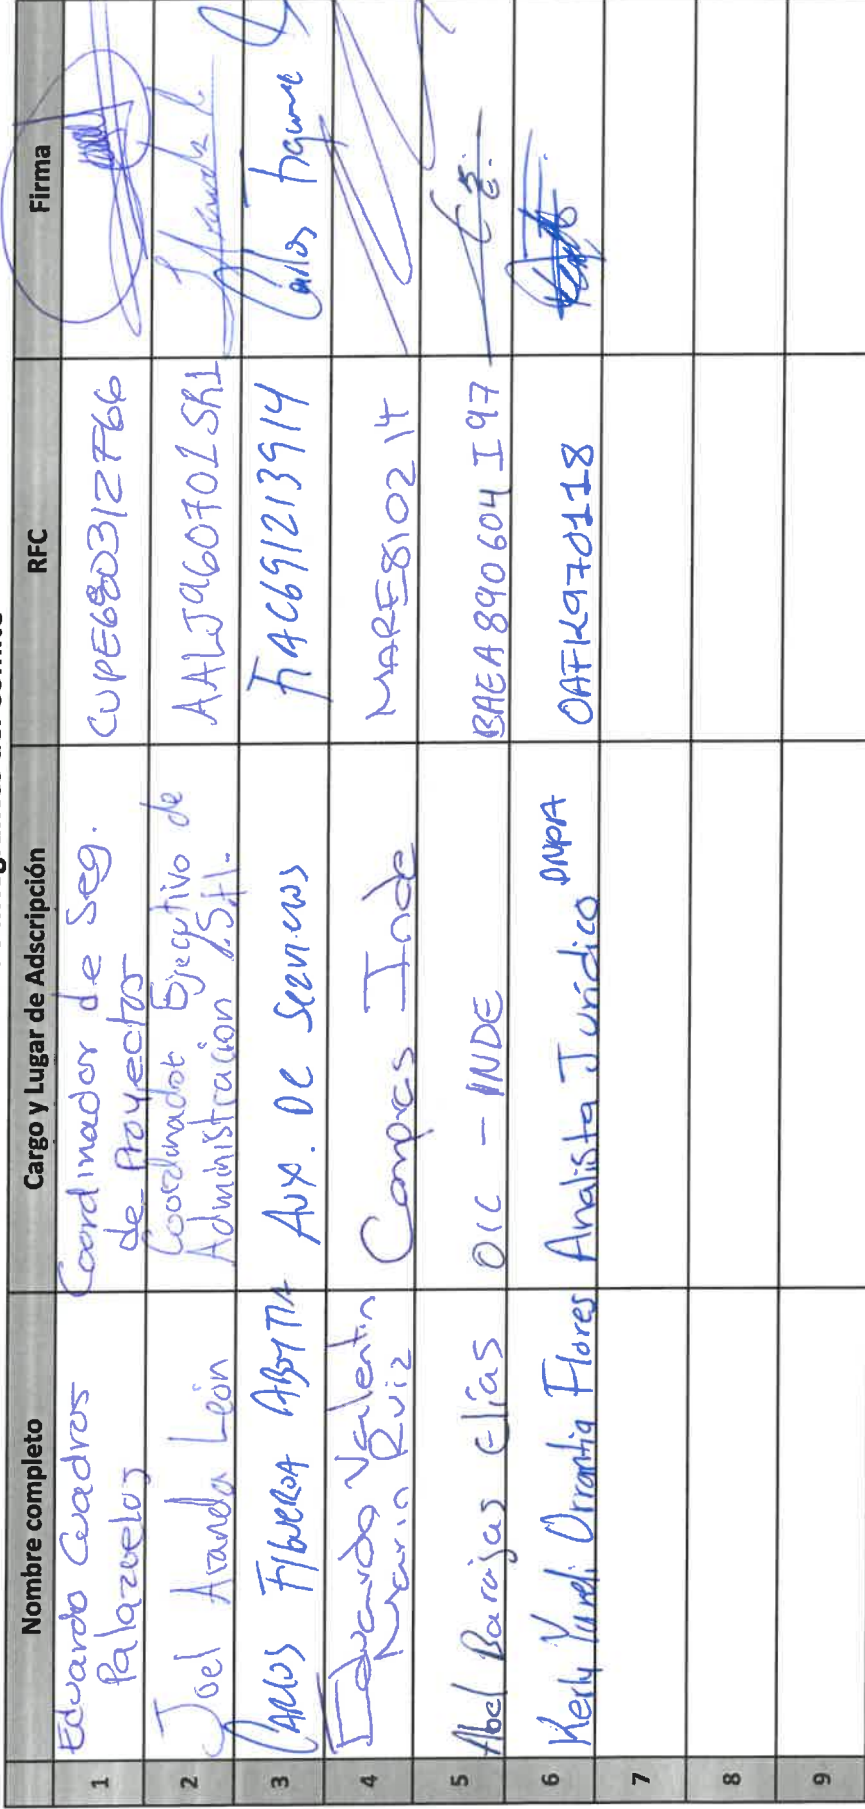 Nombre completo
Cargo y Lugar de Adscripción
RFC
Firma
1
Eduardo Cuadros
Palazuelos
Coordinador de Seg.
de Proyectos
CUPE680312F66
2
Joel Aranda León
Coordinador Ejecutivo de
Administración
AALJ960701SR1
3
Carlos Figueroa Abytia
Aux. De Servicios
FIAC691213914
Carlos Figueroa
4
Eduardo Valentin
Marin Ruiz
Compras Inde
MARE810214
5
Abel Barajas Elías
OIC - INDE
BAEA890604I97
6
Kerly Yureli Orrantia Flores
Analista Jurídico
OAFK970118
7
8
9